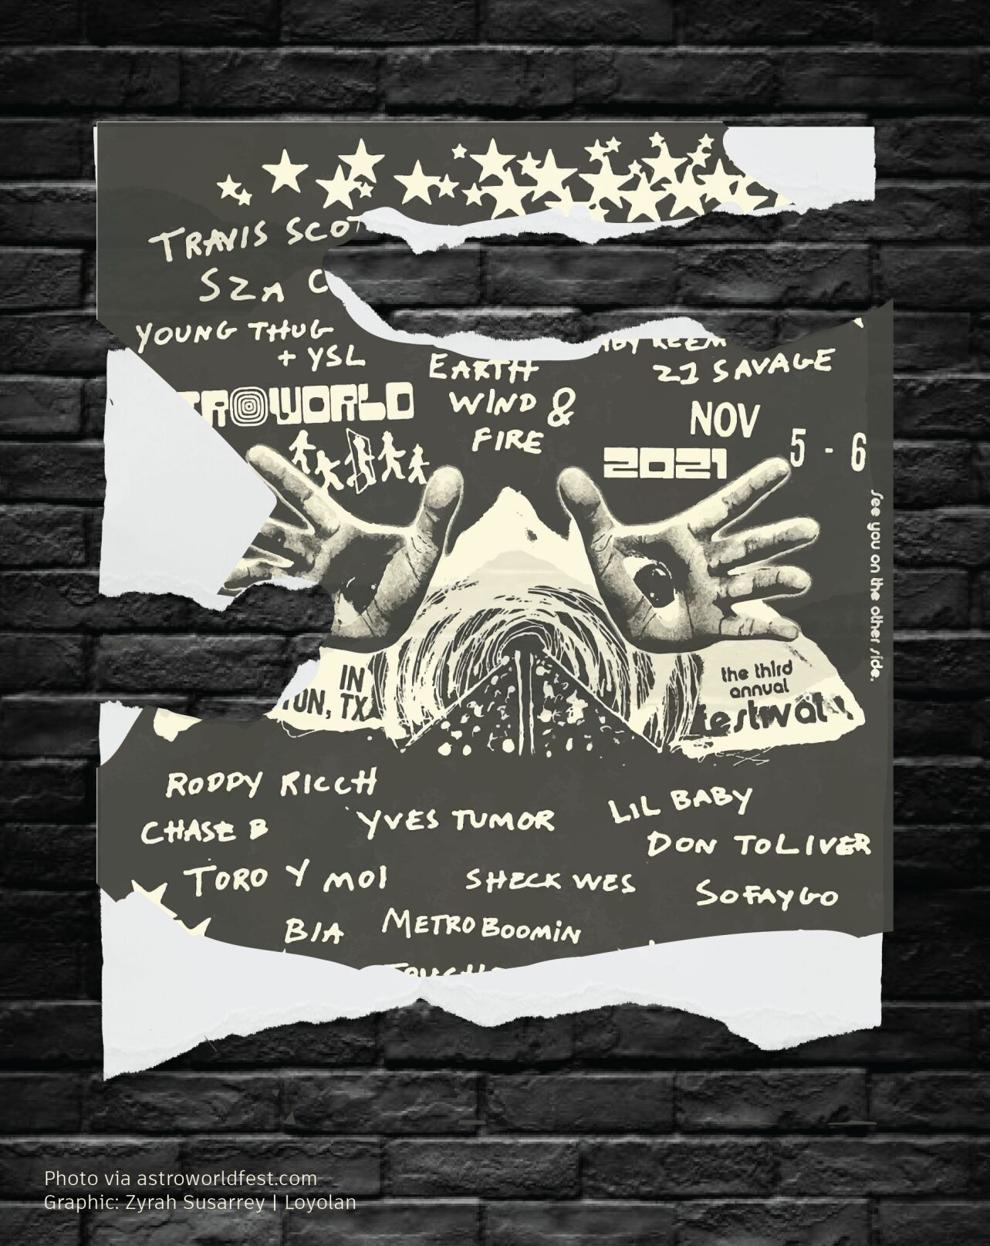 TRAVIS SCOT
SZA C
YOUNG THUG
+ YSL
EARTH
WIND &
FIRE
BABY KEEM
21 SAVAGE
ROWORLD
NOV
5 - 6
2021
See you on the other side.
IN
ON, TX
the third
annual
festival
RODDY RICCH
CHASE B
YVES TUMOR
LIL BABY
DON TOLIVER
TORO Y MOI
SHECK WES
SOFAYGO
BIA
METRO BOOMIN
Photo via astroworldfest.com
Graphic: Zyrah Susarrey | Loyolan